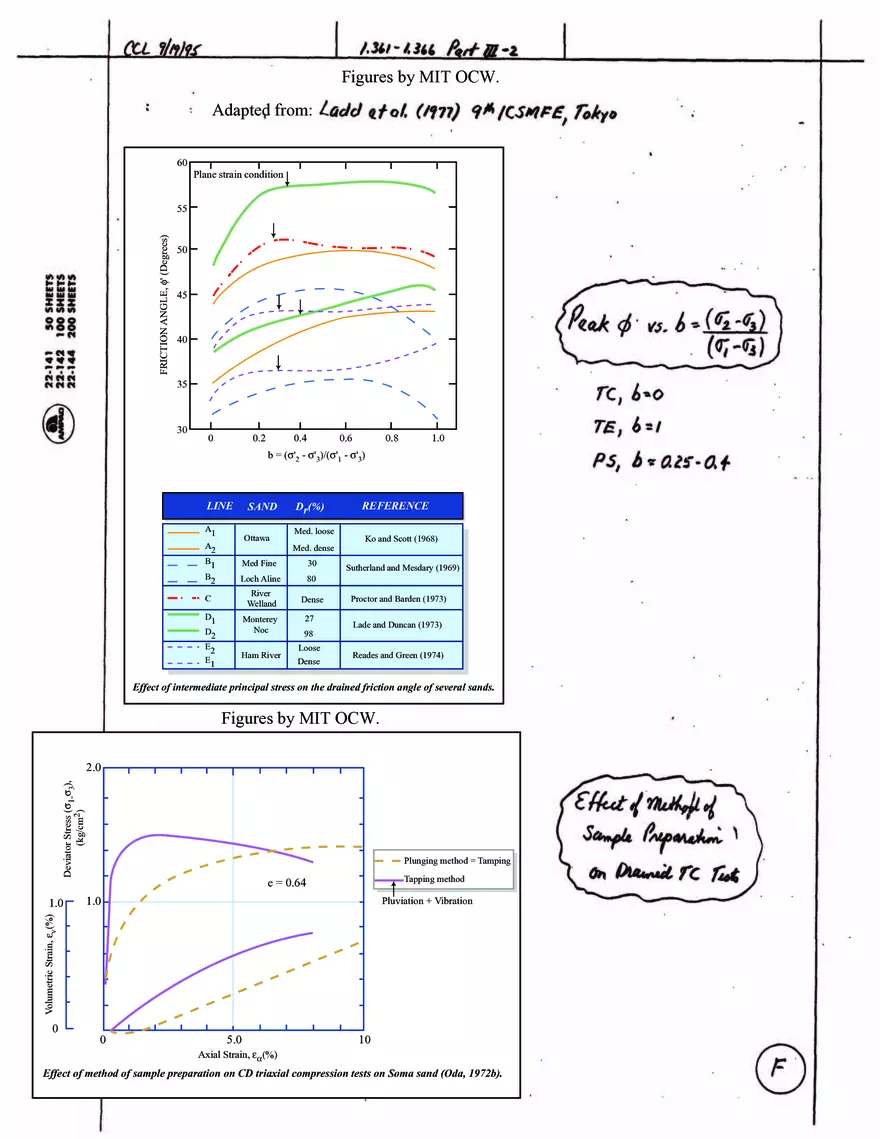 CCL 9/19/95
1.361-1.366 Part III-2
Figures by MIT OCW.
Adapted from: Ladd et al. (1977) 9th ICSMFE, Tokyo
50 SHEETS
100 SHEETS
200 SHEETS
22-141
22-142
22-144
AMPAD
60
55
50
45
40
35
30
FRICTION ANGLE, ϕ' (Degrees)
Plane strain condition
0 0.2 0.4 0.6 0.8 1.0
b = (σ'2 - σ'3)/(σ'1 - σ'3)
Peak ϕ' vs. b = (σ2-σ3)
(σ1-σ3)
TC, b=0
TE, b=1
PS, b≈0.25-0.4
LINE SAND Dr(%) REFERENCE
A1 Ottawa Med. loose Ko and Scott (1968)
A2 Med. dense
B1 Med Fine 30 Sutherland and Mesdary (1969)
B2 Loch Aline 80
C River Welland Dense Proctor and Barden (1973)
D1 Monterey 27 Lade and Duncan (1973)
D2 Noc 98
E2 Ham River Loose Reades and Green (1974)
E1 Dense
Effect of intermediate principal stress on the drained friction angle of several sands.
Figures by MIT OCW.
2.0
1.0
Deviator Stress (σ1,σ3),
(kg/cm2)
1.0
0
Volumetric Strain, εv(%)
e = 0.64
Plunging method = Tamping
Tapping method
Pluviation + Vibration
0 5.0 10
Axial Strain, εα(%)
Effect of method of sample preparation on CD triaxial compression tests on Soma sand (Oda, 1972b).
Effect of Method of
Sample Preparation
on Drained TC Tests
F